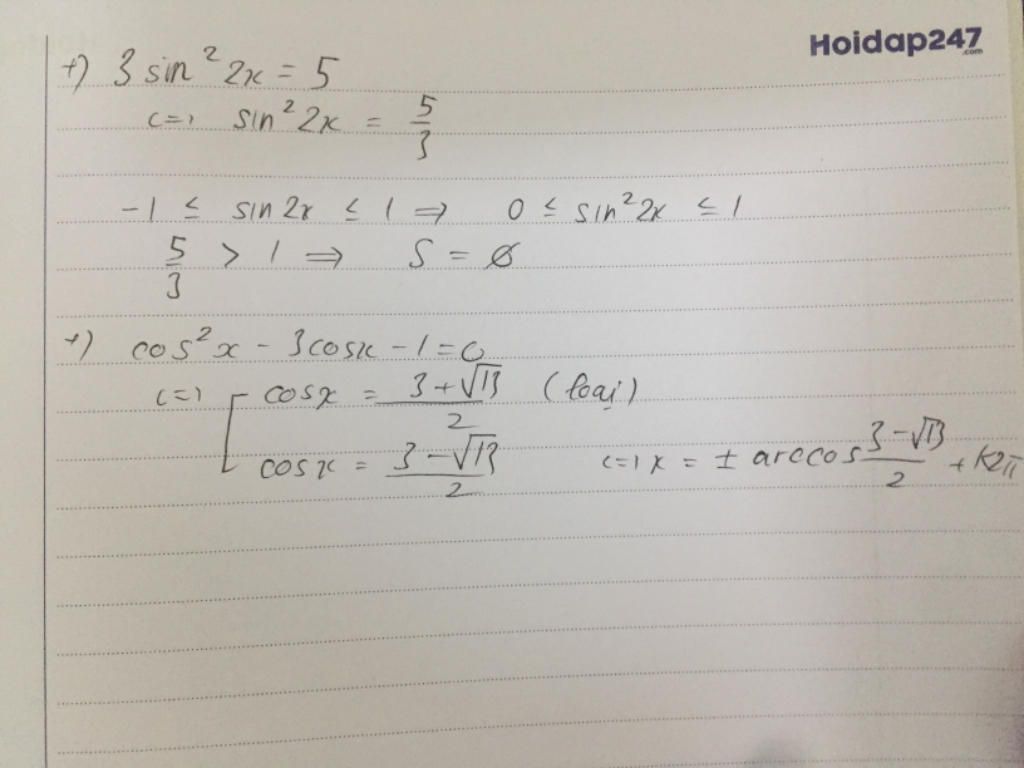 Hoidap247
.com
+) 3 sin² 2x = 5
<=> sin² 2x = 5/3
-1 ≤ sin 2x ≤ 1 => 0 ≤ sin² 2x ≤ 1
5/3 > 1 => S = ∅
+) cos² x - 3cosx - 1 = 0
<=> [ cosx = (3 + √13)/2 (loại)
cosx = (3 - √13)/2 <=> x = ± arccos (3 - √13)/2 + k2π